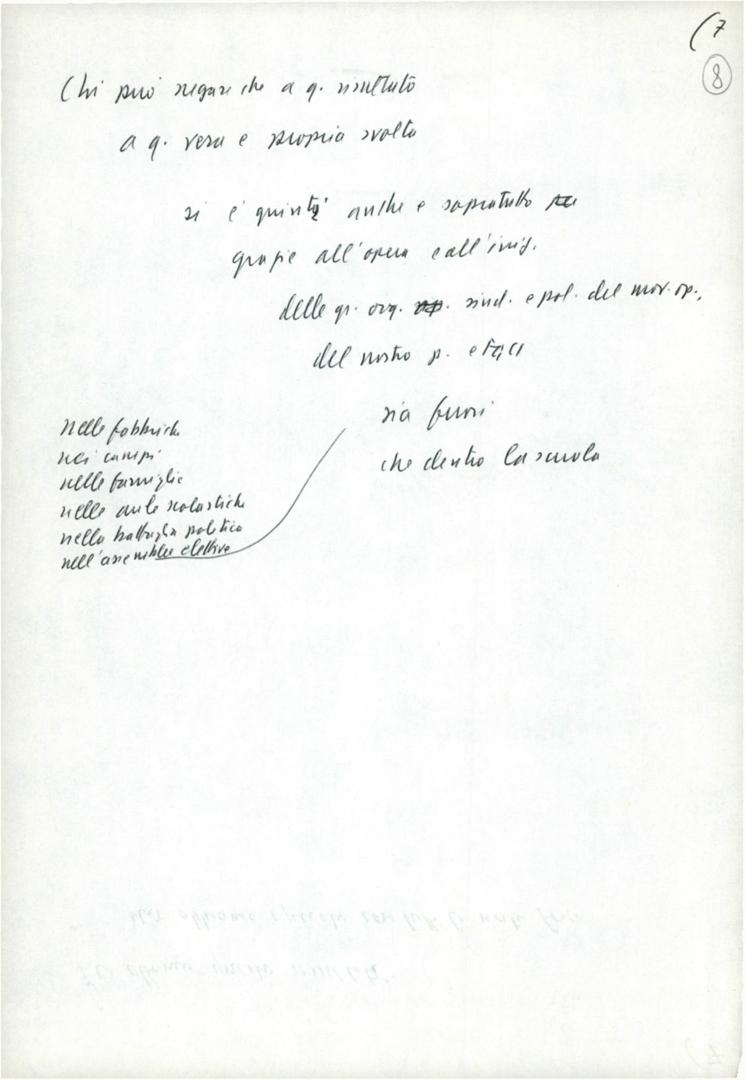 (7
8
Chi può negare che a q. risultato
a q. vera e propria svolta
si è giunti anche e sopratutto
grazie all'opera e all'iniz.
delle gr. org. sind. e pol. del mov. op.,
del nostro p. e FGCI
sia fuori
che dentro la scuola
nelle fabbriche
nei campi
nelle famiglie
nelle aule scolastiche
nella battaglia politica
nell'assemblee elettive